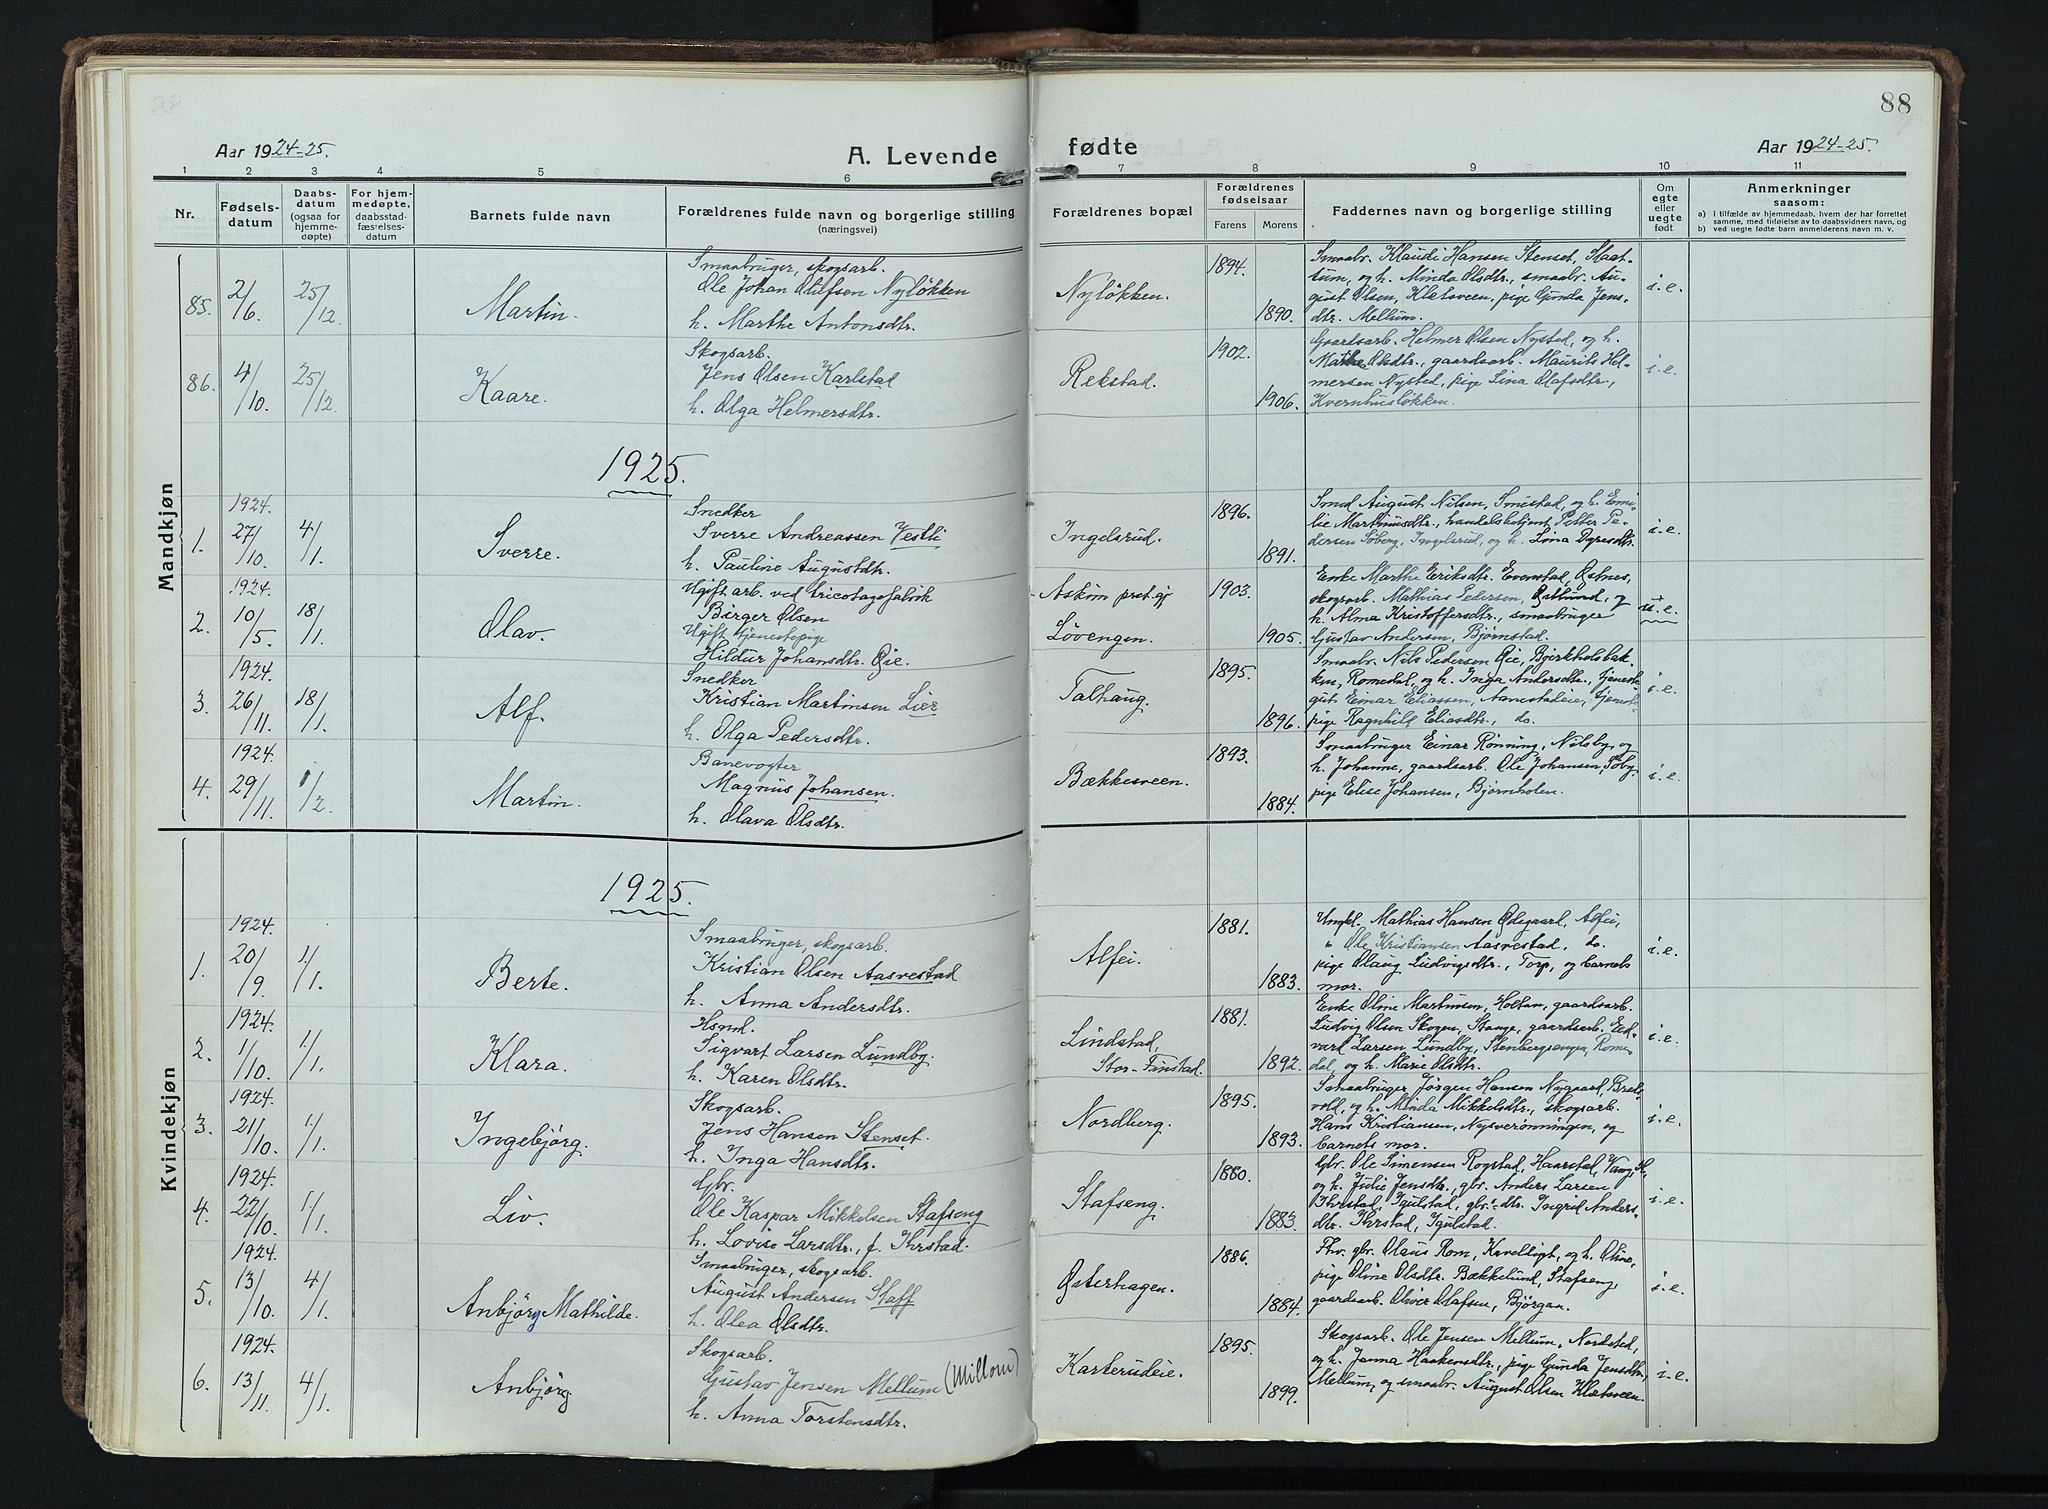 88
Aar 1924-25.
A. Levende
fødte
Aar 1924-25.
1 2 3 4 5 6 7 8 9 10 11
Nr.
Fødsels-
datum
Daabs-
datum
(ogsaa for
hjemme-
døpte)
For hjem-
medøpte,
daabsstad-
fæstelses-
datum
Barnets fulde navn
Forældrenes fulde navn og borgerlige stilling
(næringsvei)
Forældrenes bopæl
Forældrenes
fødselsaar
Farens Morens
Faddernes navn og borgerlige stilling
Om
egte
eller
uegte
født
Anmerkninger
saasom:
a) i tilfælde av hjemmedaab, hvem der har forrettet
samme, med tilføielse av to daabsvidners navn, og
b) ved uegte fødte barn anmelderens navn m. v.
Mandkjøn
85. 2/6. 25/12. Martin.
Smaabruger, skogsarb.
Ole Johan Olufsen Nyløkken
h. Marthe Antonsdtr.
Nyløkken.
1894.
1890.
Smaabr. Klaudi Hansen Stenset, Slaat-
tum, og h. Minda Olsdtr., smaabr. Au-
gust Olsen, Kletsveen, pige Gunda Jens-
dtr. Mellum.
i.e.
86. 4/10. 25/12 Kaare.
Skogsarb.
Jens Olsen Karlstad
h. Olga Helmersdtr.
Rekstad.
1902.
1906.
Gaardsarb. Helmer Olsen Nystad, og h.
Mathea Olsdtr., gaardsarb. Maurits Hel-
mersen Nystad, pige Lina Olafsdtr.,
Kvernhusløkken.
i.e.
1925.
1924.
1. 27/10. 4/1. Sverre.
Snedker
Sverre Andreassen Vestli
h. Pauline Augustdtr.
Ingelsrud.
1896.
1891.
Smed August Nilsen, Smestad, og h. Emi-
lie Martinusdtr., handelsbetjent Petter Pe-
dersen Søberg, Ingelsrud, og h. Lina Dyresdtr.
i.e.
1924.
2. 10/5. 18/1. Olav.
Ugift arb. ved tricotagefabrik
Birger Olsen
Ugift tjenestepige
Hildur Johansdtr. Øie.
Askim prestgj
Løvengen.
1903.
1905.
Enke Marthe Eriksdtr. Evenstad, Østnes,
skogsarb. Mathias Pedersen, Østlund, og
h. Alma Kristoffersdtr., smaabruger
Gustav Andersen, Bjørnstad.
u.e.
1924.
3. 26/11. 18/1. Alf.
Snedker
Kristian Martinsen Lier
h. Olga Pedersdtr.
Talhaug.
1895.
1896.
Smaabr. Nils Pedersen Øie, Bjerkholsbak-
ken, Romedal, og h. Inga Andersdtr., tjeneste-
gut Einar Eliassen, Aanestadeie, tjeneste-
pige Ragnhild Eliasdtr., do.
i.e.
1924.
4. 29/11. 1/2. Martin.
Banevogter
Magnus Johansen.
h. Olava Olsdtr.
Bækkesveen.
1893.
1884.
Smaabruger Einar Rønning, Nilsby, og
h. Johanne, gaardsarb. Ole Johansen, Søby,
pige Elise Johansen, Bjørnholen.
i.e.
Kvindekjøn
1925.
1924.
1. 20/9. 1/1. Berte.
Smaabruger, skogsarb.
Kristian Olsen Aasvestad
h. Anna Andersdtr.
Alfei.
1881.
1883.
Ungkl. Mathias Hansen Ødegaard, Alfei,
" Ole Kristiansen Aasvestad, do.
pige Olaug Ludvigsdtr., Torp, og barnets
mor.
i.e.
1924.
2. 1/10. 1/1. Klara.
Hsmd.
Sigvart Larsen Lundby.
h. Karen Olsdtr.
Lindstad,
Stor-Finstad.
1881.
1892.
Enke Oline Martinsen, Holtan, gaardsarb.
Ludvig Olsen Skogen, Stange, gaardsarb. Ed-
vard Larsen Lundby, Stenbergsengen, Rome-
dal, og h. Marie Olsdtr.
i.e.
1924.
3. 21/10. 1/1. Ingebjørg.
Skogsarb.
Jens Hansen Stenset.
h. Inga Hansdtr.
Nordberg.
1895.
1893.
Smaabruger Jørgen Hansen Nygaard, Bred-
vold, og h. Minda Mikkelsdtr., skogsarb.
Hans Kristiansen, Nysverønningen, og
barnets mor.
i.e.
1924.
4. 22/10. 1/1. Liv.
Gbr.
Ole Kaspar Mikkelsen Stafseng
h. Lovise Larsdtr., f. Ihrstad.
Stafseng.
1880.
1883.
Gbr. Ole Simensen Rogstad, Haarstad, Vang, H.,
og h. Julie Jensdtr., gbr. Anders Larsen
Ihrstad, Igulstad, gbr.-dtr. Ingrid Anders-
dtr. Ihrstad, Igulstad.
i.e.
1924.
5. 13/10. 4/1. Anbjørg Mathilde.
Smaabruger, skogsarb.
August Andersen Staff
h. Olea Olsdtr.
Østerhagen.
1886.
1884.
Fhv. gbr. Olaus Rom, Kvelløpt, og h. Oline,
pige Oline Olsdtr. Bækkelund, Stafseng,
gaardsarb. Oliver Olafsen, Bjørgan.
i.e.
1924.
6. 13/11. 4/1. Anbjørg
Skogsarb.
Gustav Jensen Mellum (Millom)
h. Anna Torstensdtr.
Karterudeie.
1895.
1899.
Skogsarb. Ole Jensen Mellum, Nordstad,
og h. Janna Haakensdtr., pige Gunda Jensdtr.
Mellum, og smaabr. August Olsen Kletsveen.
i.e.